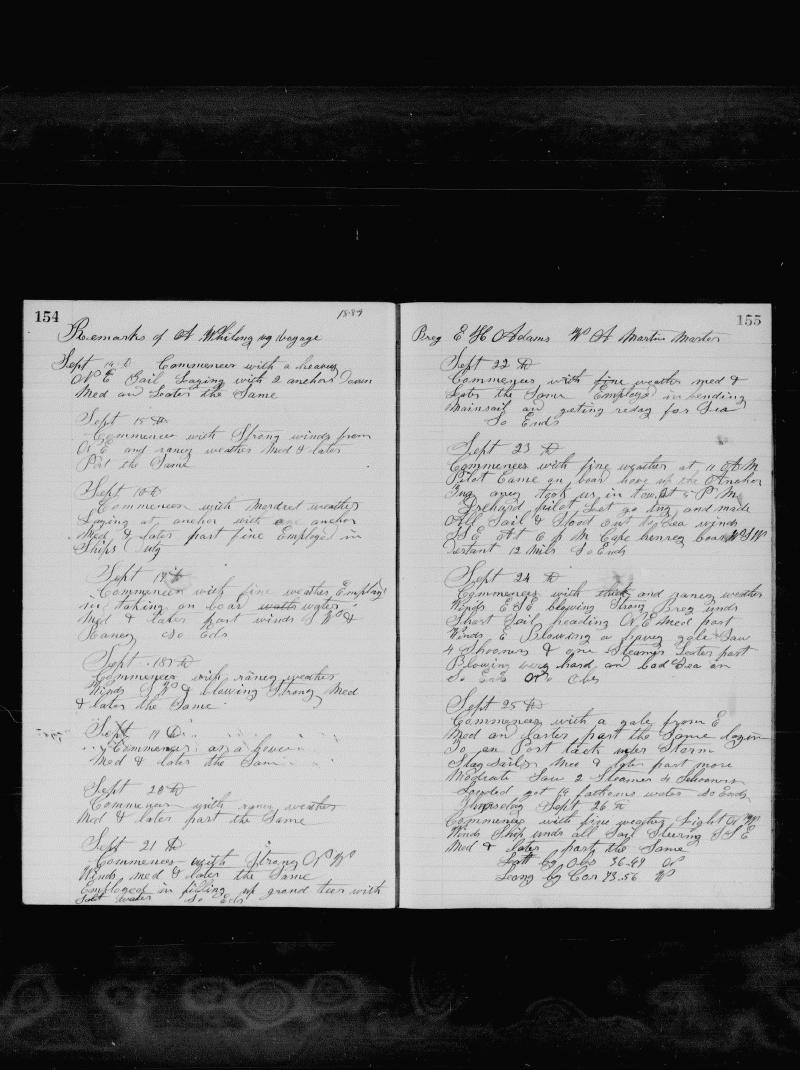 154
1889
Remarks of A Whiling voyage
Sept 14 th Commences with a heavey
N E Gail Laying with 2 anchors Down
Med and Later the Same
Sept 15 th
Commences with Strong winds from
N E and raney weather Med & later
Part the Same
Sept 16 th
Commences with Mordret weather
Laying at anchor with one anchor
Med & later part fine Employed in
Ships Duty
Sept 17 th
Commences with fine weather Employ
in taking on boar water
Med & later part winds S W &
Raney So Eds
Sept 18 th
Commences with raney weather
Winds S W & blowing Strong Med
& later the Same
Sept 19 th
Commences
Med & later the Same
Sept 20 th
Commences with raney weather
Med & later part the Same
Sept 21 th
Commences with Strong N W
Winds, med & later the Same
Employed in filling up ground teer with
Salt water So Eds
155
Breg E H Adams W A Martin Master
Sept 22 th
Commences with fine weather med &
Later the Same Employed in bending
Mainsail and geting reday for Sea
So Ends
Sept 23 th
Commences with fine weather at 11 A M
Pilot Came on boar hove up the Anchor
Tug took us in tow At 5 P M
pilot Let go tug and made
All Sail & Stood out to Sea winds
S E At 6 P M Cape henrey boar W S W
Destant 12 Mils So Ends
Sept 24 th
Commences with and raney weather
Winds E S E blowing Strong Breg unds
Short Sail heading N E Med part
Winds E Blowing a havey gale Saw
4 Shooners & one Steamer Later part
Blowing very hard and bad Sea on
So Ends No Obs
Sept 25 th
Commences with a gale from E
Med and later part the Same laying
to on Port tack under Storm
Stay Sails Med & later part more
Moderate Saw 2 Steamer 4 Schooners
Sounded got 14 fathoms water So Ends
Thursday Sept 26 th
Commences with fine weather Light N W
Winds Ship unds all Sail Steering S S E
Med & later part the Same
Latt by Obs 36.49 N
Long by Cor 73.56 W